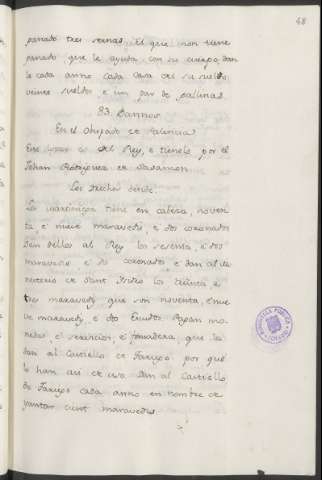 48
panado tres sernas. El que non tiene
panado que le ayuda con su cuerpo, dan
le cada anno cada casa del su suelo
veinte sueldos e un par de gallinas.
83. Barrios
En el Obispado de Palencia
Este logar es del Rey, e tienelo por el
Johan Rodriguez de Sasamon.
Los derechos dende.
La martiniega tiene en cabeza, noven
ta e nueve maravedis, e dos coronados
Dan dellos al Rey los sesenta, e dos
maravedis e dos coronados e dan al
de Sant Isidro los treinta e
tres maravedis que son noventa, e nue
ve maravedis e dos Escudos Pagan mo
nedas, e servicios, e fonsadera, que la
dan al Castiello de Tariego por que
lo han asi de uso Dan al Castiello
de Tariego cada anno en nombre de
yantar cient maravedis